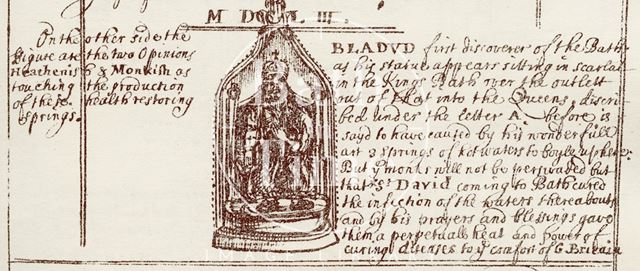 M DCCL III.
On the other side the
figure are the two Opinions
Heathenish & Monkish as
touching the production
of these health restoring
springs.
BLADVD first discoverer of the Bath
as his statue appears sitting in scarlat
in the Kings Bath over the outlett
out of that into the Queens, discri-
bed under the letter A. before is
sayd to have caused by his wonderfull
art 3 springs of hot waters to boyle up here
But yͤ monks will not be perswaded but
that Sͭ DAVID coming to Bath cured
the infiction of the waters thereabouts
and by his prayers and blessings gave
them a perpetuall heat and power of
curing diseases to yͤ comfort of G. Britain